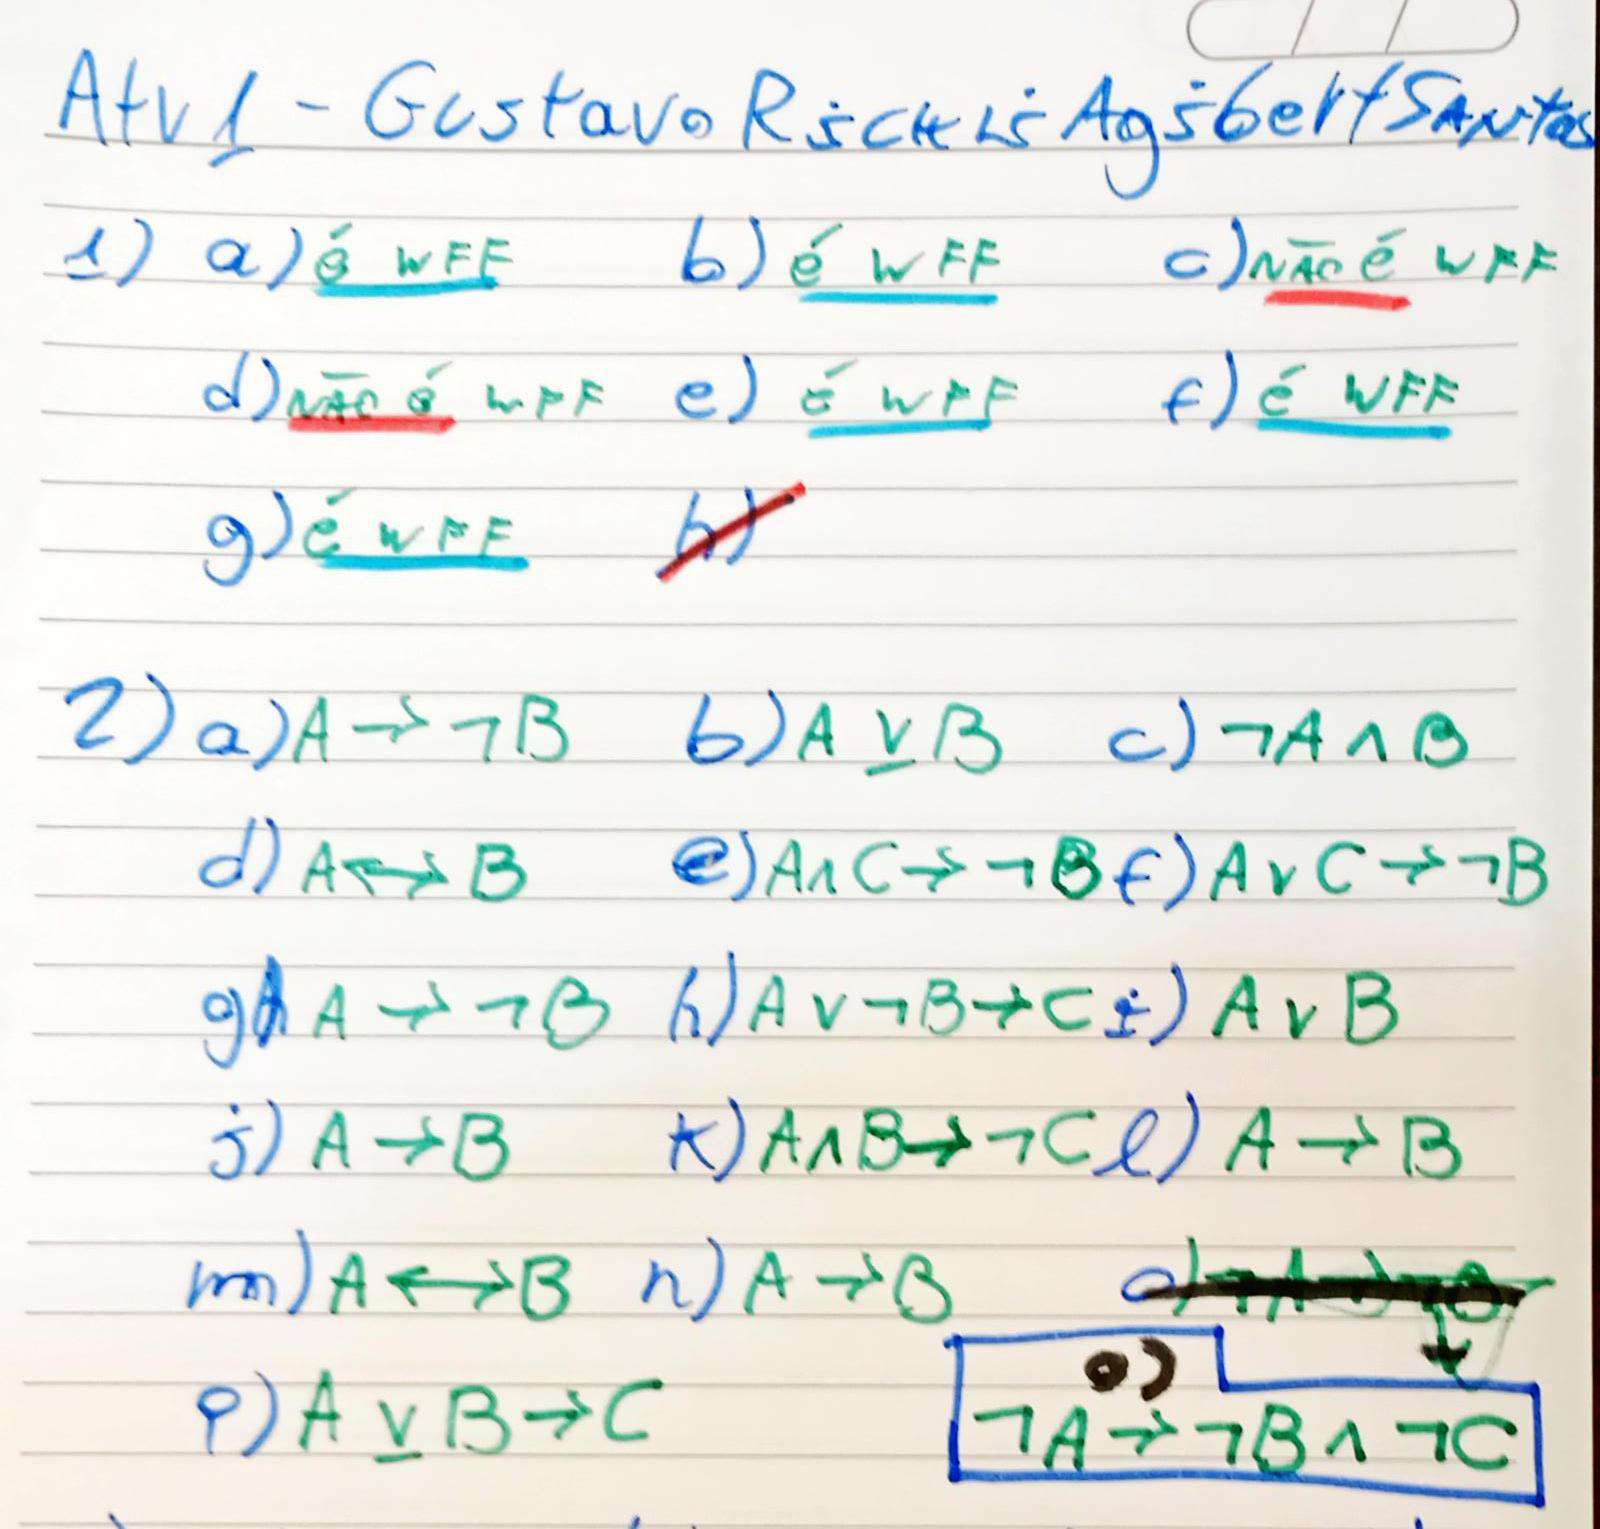 Atv1 - Gustavo RiCHLi Agibert SANtos
1) a) é WFF b) é WFF c) NÃO é WFF
d) NÃO é WFF e) é WFF f) é WFF
g) é WFF h)
2) a) A → ¬B b) A ⊻ B c) ¬A ∧ B
d) A ↔ B e) A ∧ C → ¬B f) A ∨ C → ¬B
g) A → ¬B h) A ∨ ¬B → C i) A ∨ B
j) A → B k) A ∧ B → ¬C l) A → B
m) A ↔ B n) A → B
o)
p) A ⊻ B → C ¬A → ¬B ∧ ¬C